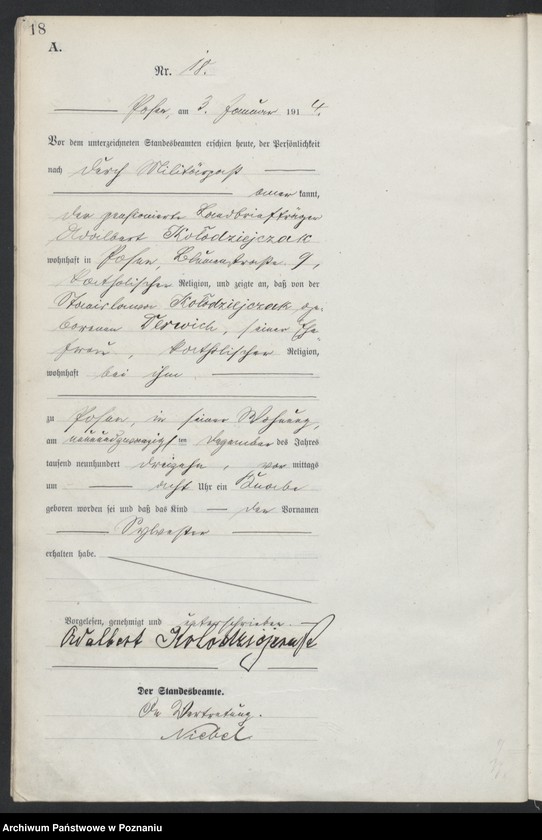 18
A.
Nr. 18.
Posen, am 3. Januar 1914.
Vor dem unterzeichneten Standesbeamten erschien heute, der Persönlichkeit
nach durch Militärpaß
aner kannt,
der pensionierte Landbriefträger
Adalbert Kołodziejczak
wohnhaft in Posen, Blumenstraße 9,
katholischer Religion, und zeigte an, daß von der
Stanislawa Kołodziejczak, ge-
borenen Derwich, seiner Ehe-
frau, katholischer Religion,
wohnhaft bei ihm
zu Posen, in seiner Wohnung,
am neunundzwanzigsten Dezember des Jahres
tausend neunhundert dreizehn, vor mittags
um acht Uhr ein Knabe
geboren worden sei und daß das Kind den Vornamen
Sylvester
erhalten habe.
Vorgelesen, genehmigt und unterschrieben.
Adalbert Kolodziejczak
Der Standesbeamte.
In Vertretung.
Niebel
Archiwum Państwowe w Poznaniu